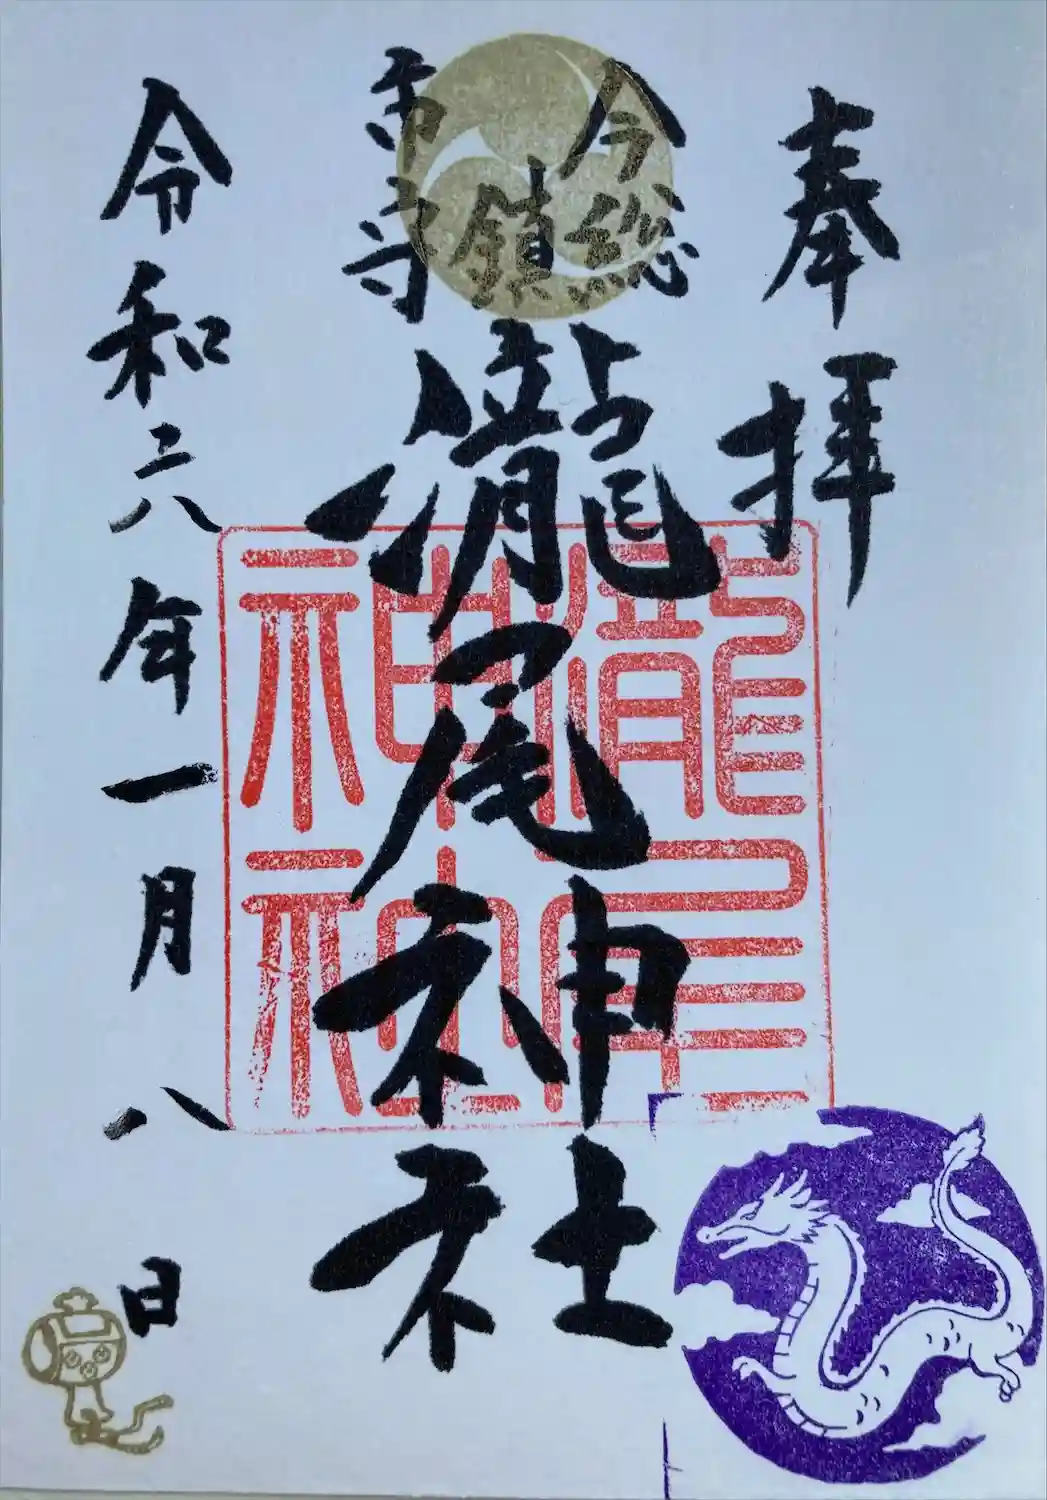 奉拝
今市総鎮守
瀧尾神社
令和六年一月八日
瀧尾神社